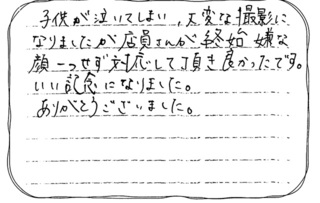 子供が泣いてしまい、大変な撮影に
なりましたが店員さんが終始嫌な
顔一つせず対応して頂き良かったです。
いい記念になりました。
ありがとうございました。